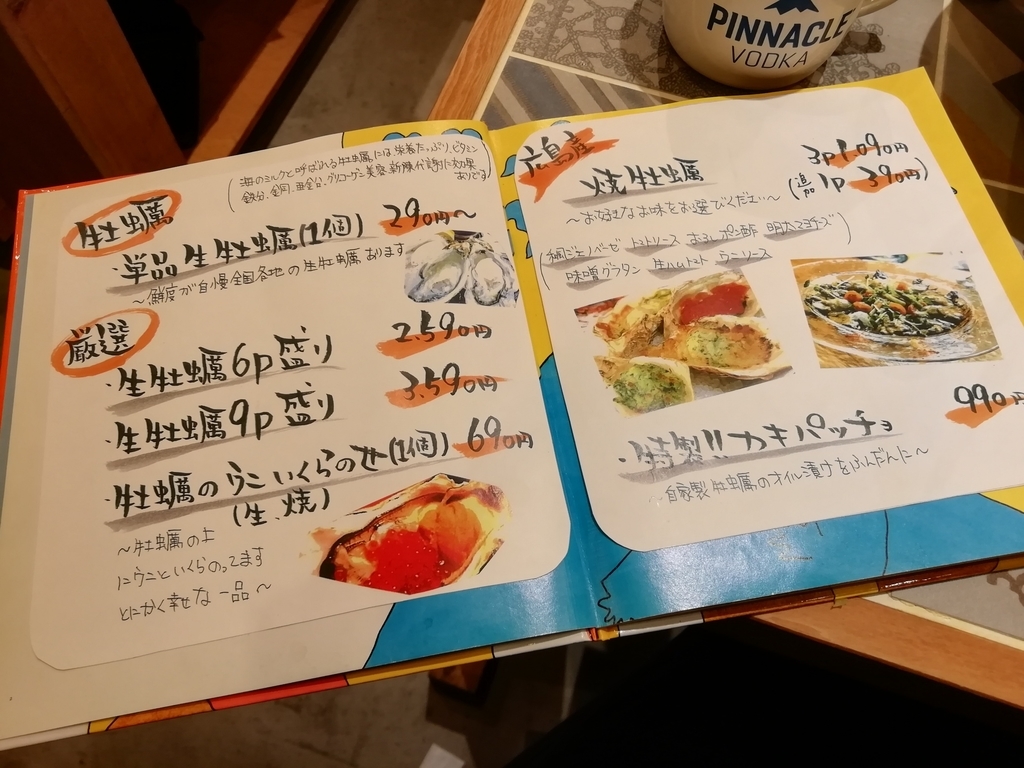 PINNACLE
VODKA
牡蠣
(海のミルクと呼ばれる牡蠣には栄養たっぷり、ビタミン
鉄分、銅、亜鉛、グリコーゲン 美容、新陳代謝に効果
ありです)
・単品 生牡蠣(1個) 290円~
~鮮度が自慢 全国各地の生牡蠣あります
厳選
・生牡蠣6p盛り 2.590円
・生牡蠣9p盛り 3.590円
・牡蠣のうにいくらのせ(1個) 690円
(生、焼)
~牡蠣の上
にウニといくらのってます
とにかく幸せな一品~
広島産
焼牡蠣 3p1.090円
(追加 1p 390円)
~お好きなお味をお選びください~
(桐ジェノベーゼ トマトソース おろしポン酢 明太マヨチーズ
味噌グラタン 生ハムトマト ウニソース)
・特製!!カキパッチョ 990円
~自家製牡蠣のオイル漬けをふんだんに~